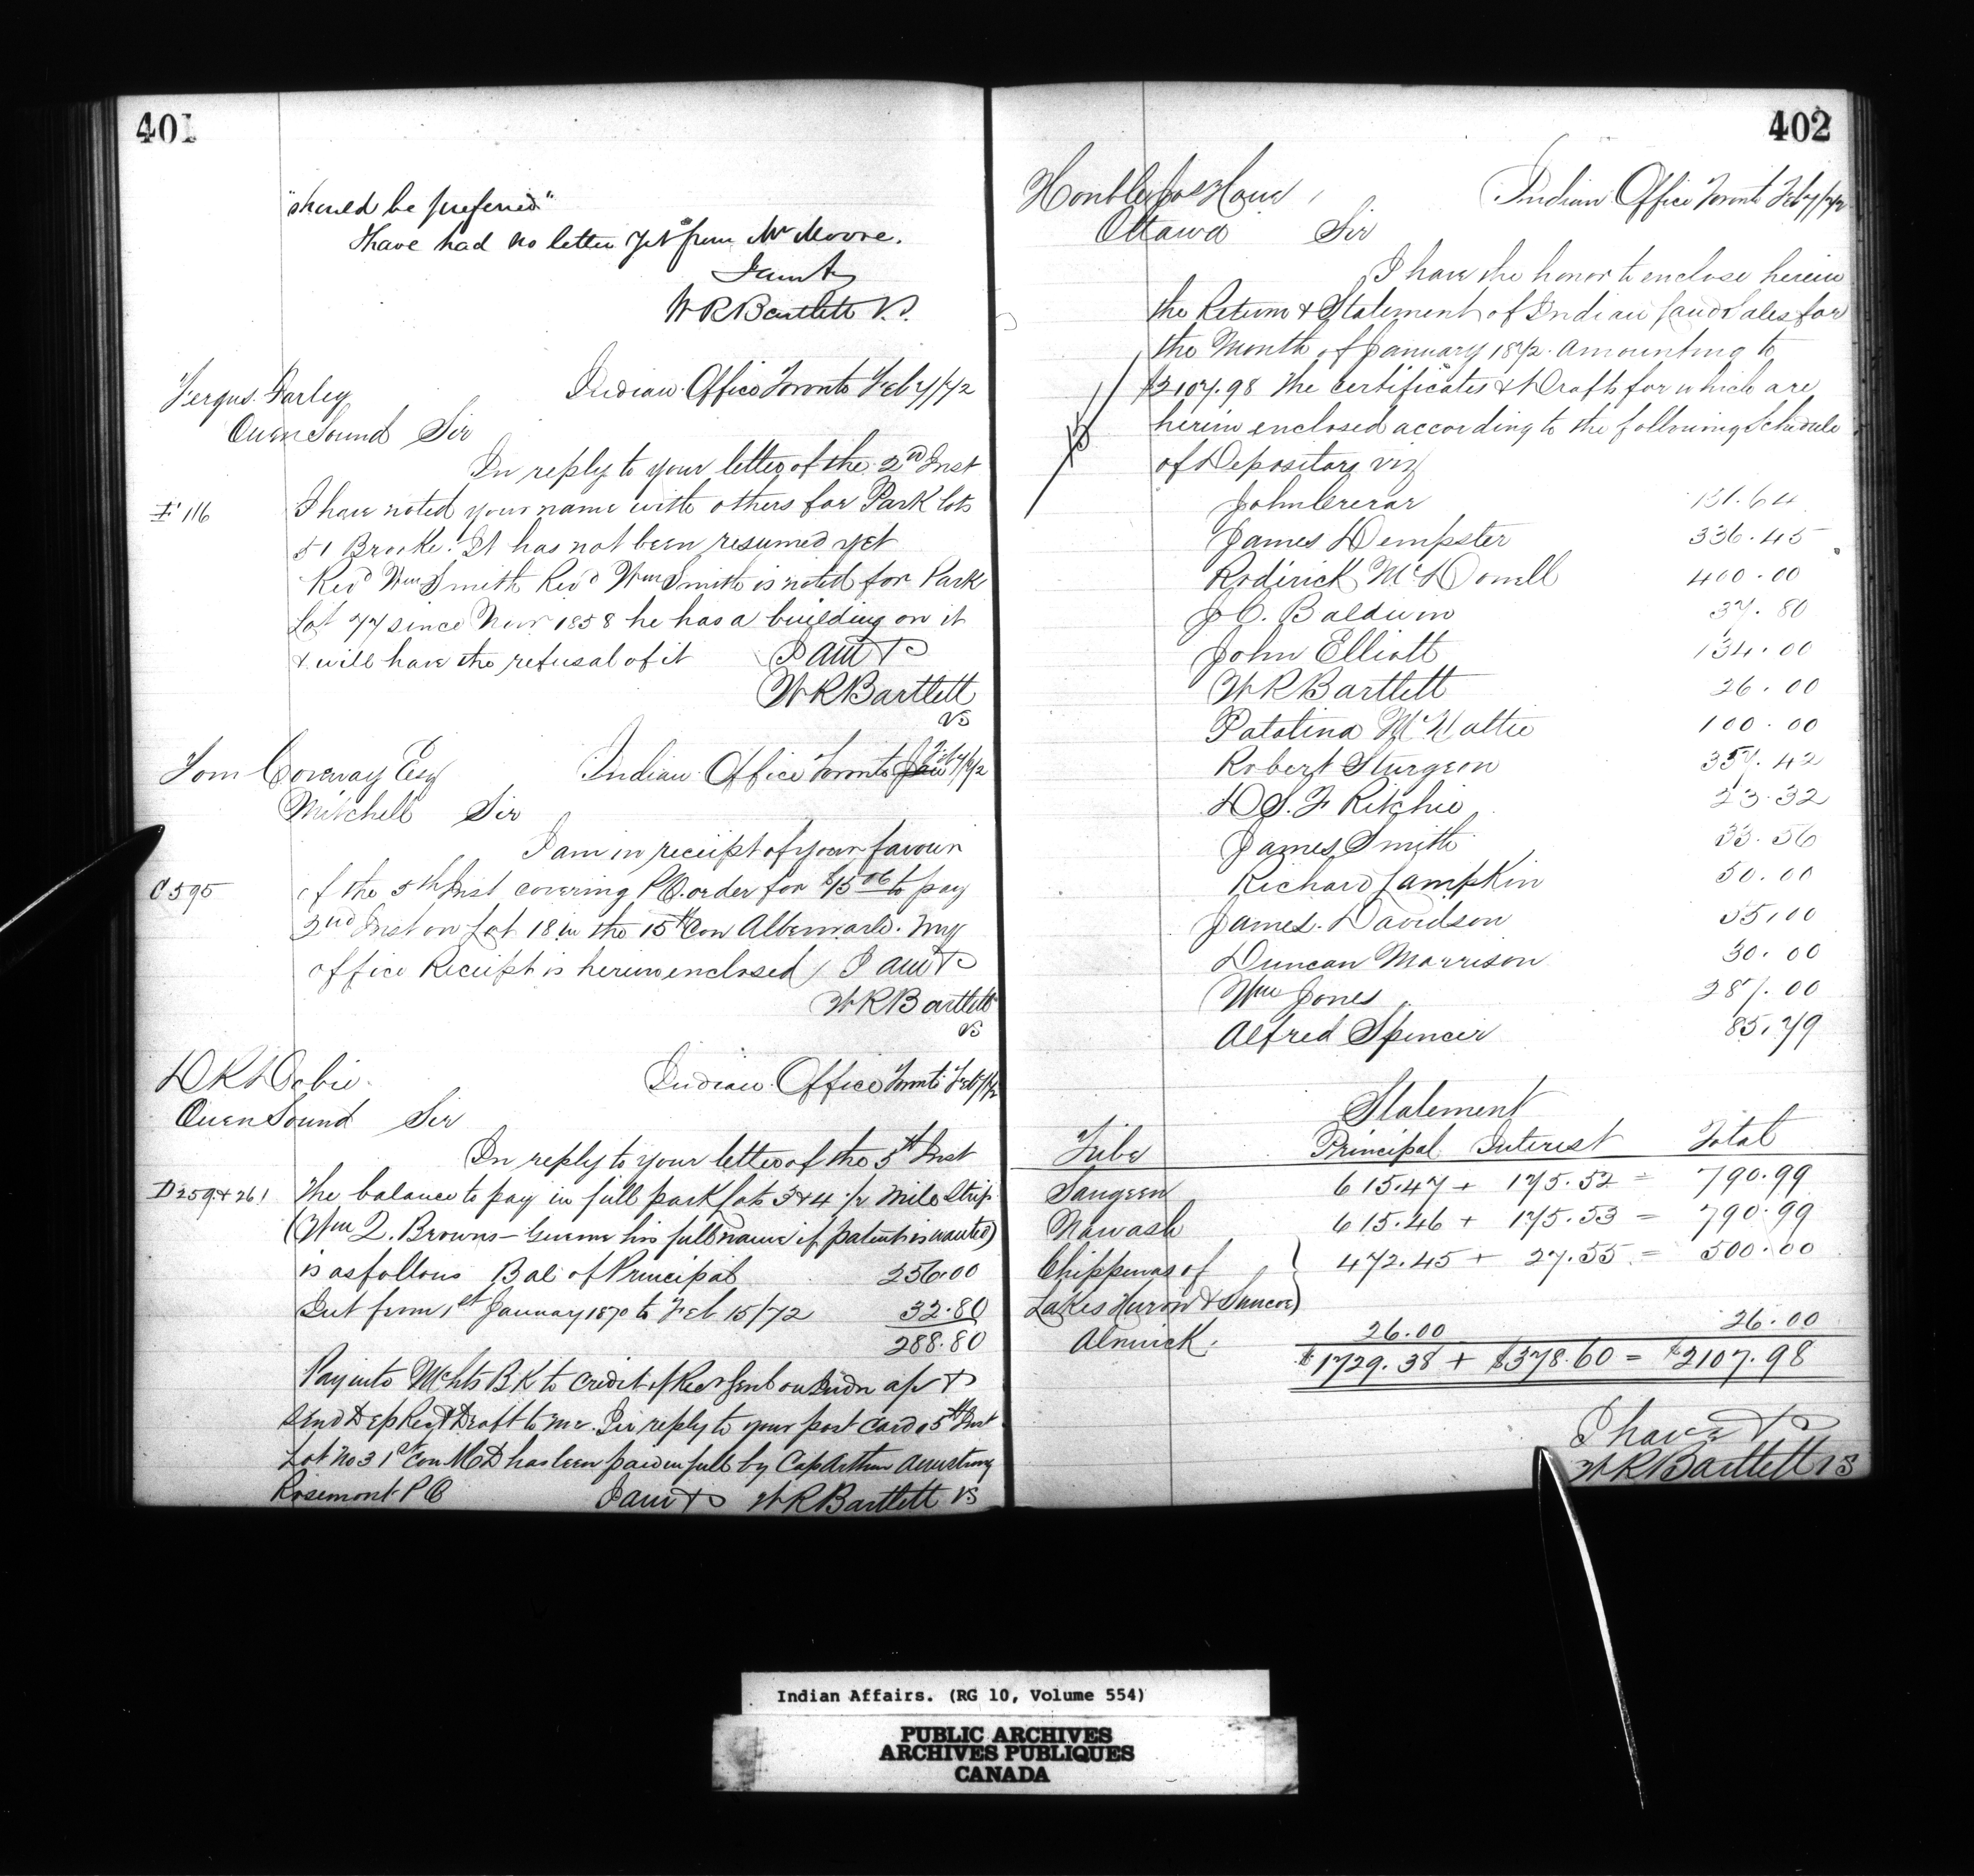 401
"should be preferred"
I have had no letter yet from Mr Moore.
I am &
W R Bartlett V.S.
Fergus Farley
Indian Office Toronto Feb 7/72
Owen Sound Sir
In reply to your letter of the 2nd Inst
F 116
I have noted your name with others for Park lots
51 Brooke. It has not been resumed yet
Revd Wm Smith Revd Wm Smith is noted for Park
Lot 77 since Nov 1858 he has a building on it
& will have the refusal of it I am &
W R Bartlett
VS
Tom Coveway Esq
Indian Office Toronto Jan Feb 7/72
Mitchell Sir
I am in receipt of your favour
C 595
of the 5th Inst covering P.O. order for to pay
2nd Inst on Lot 18 in the 15th Con Albemarle. My
office Receipt is herein enclosed I am &
W R Bartlett
VS
D R Dobie
Indian Office Toronto Feb 7/72
Owen Sound Sir
In reply to your letter of the 5th Inst
D 259 & 261
The balance to pay in full park lots 3 & 4 1/2 Mile Strip
(Wm Q. Browns - Give me his full name if patent is wanted)
is as follows Bal of Principal 256.00
Int from 1st January 1870 to Feb 15/72 32.80
288.80
Pay into Mchts BK to credit of Recr Genl on Indn a/c &
send Dep Rect & Draft to me. In reply to your post card 5th Inst
Lot No 3 1st Con has been paid in full by Cap Arthur Armstrong
Rosemont P O I am & W R Bartlett VS
402
Honble Jos Howe
Indian Office Toronto Feb 7/72
Ottawa Sir
I have the honor to enclose herein
the Return & Statement of Indian Land Sales for
the Month of January 1872. amounting to
$2107.98 The certificates & Drafts for which are
herein enclosed according to the following Schedule
of Depositors viz
John Crerar 151.64
James Dempster 336.45
Roderick McDonell 400.00
J C. Baldwin 37.80
John Elliott 134.00
W R Bartlett 26.00
Patalina McHattie 100.00
Robert Sturgeon 357.42
D S. F Ritchie 23.32
James Smith 33.56
Richard Lampkin 50.00
James Davidson 55.00
Duncan Morrison 30.00
Wm Jones 287.00
Alfred Spencer 85.79
Statement
Tribe Principal Interest Total
Saugeen 615.47 + 175.52 = 790.99
Nawash 615.46 + 175.53 = 790.99
Chippewas of } 472.45 + 27.55 = 500.00
Lakes Huron & Simcoe)
Alnwick. 26.00 26.00
$1729.38 + $378.60 = $2107.98
I have &
W R Bartlett VS
Indian Affairs. (RG 10, Volume 554)
PUBLIC ARCHIVES
ARCHIVES PUBLIQUES
CANADA